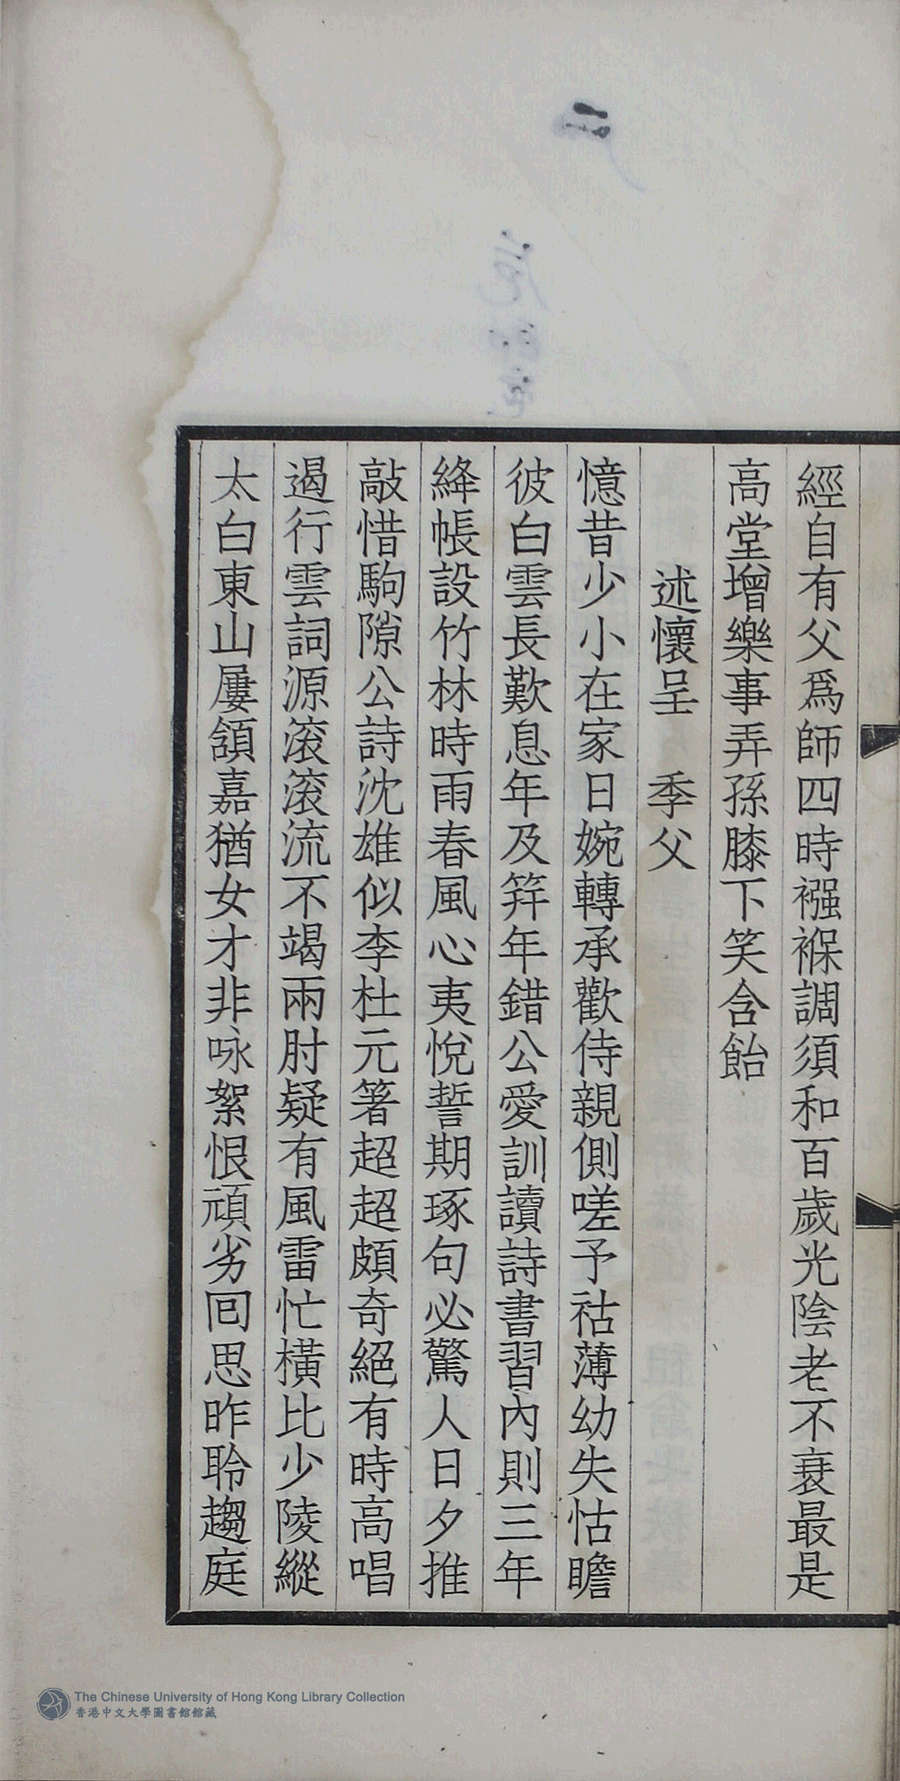 經自有父爲師四時襁褓調須和百歲光陰老不衰最是
高堂增樂事弄孫膝下笑含飴
述懷呈　季父
憶昔少小在家日婉轉承歡侍親側嗟予祜薄幼失怙瞻
彼白雲長歎息年及笄年錯公愛訓讀詩書習內則三年
絳帳設竹林時雨春風心夷悅誓期琢句必驚人日夕推
敲惜駒隙公詩沈雄似李杜元箸超超頗奇絕有時高唱
遏行雲詞源滚滚流不竭兩肘疑有風雷忙橫比少陵縱
太白東山屢頷嘉猶女才非咏絮恨頑劣囘思昨聆趨庭
The Chinese University of Hong Kong Library Collection
香港中文大學圖書館館藏